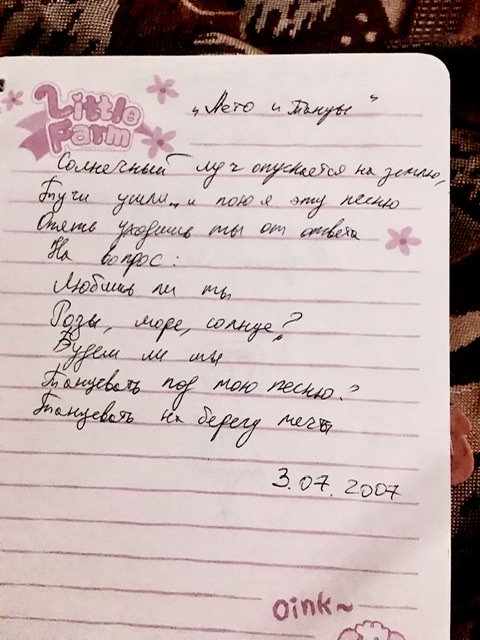 Little
Farm
„Лето и танцы"
Солнечный луч опускается на землю,
Тучи ушли, и пою я эту песню
Опять уходишь ты от ответа
На вопрос:
Любишь ли ты
Розы, море, солнце?
Будем ли мы
Танцевать под мою песню?
Танцевать на берегу мечты
3.07.2007
Oink~